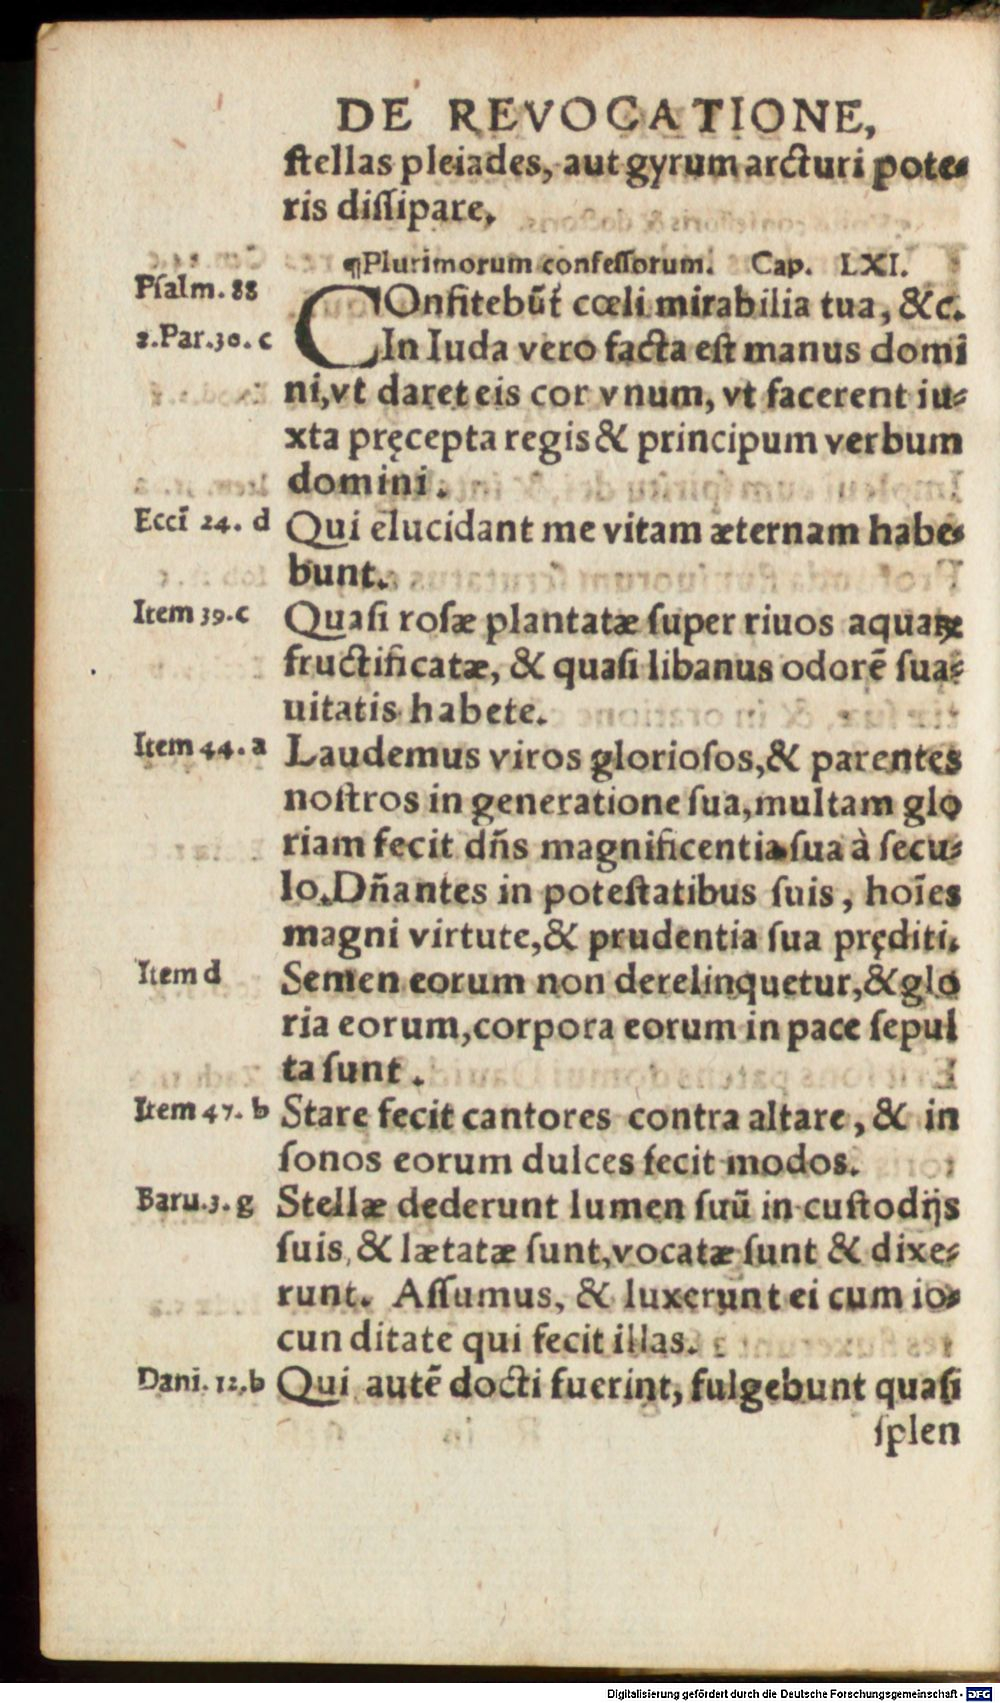 DE REVOCATIONE,
ſtellas pleiades, aut gyrum arcturi pote-
ris diſſipare.
¶Plurimorum confeſſorum. Cap. LXI.
Pſalm. 88
COnfitebũt́ cœli mirabilia tua, &c.
2.Par.30. c
In Iuda vero facta eſt manus domi
ni,vt daret eis cor vnum, vt facerent iu-
xta pręcepta regis & principum verbum
domini.
Eccĩ 24. d
Qui elucidant me vitam æternam habe-
bunt.
Item 39.c
Quaſi roſæ plantatæ ſuper riuos aquaꝝ
fructificatæ, & quaſi libanus odorẽ ſua-
uitatis habete.
Item 44. a
Laudemus viros glorioſos,& parentes
noſtros in generatione ſua,multam glo
riam fecit dñs magnificentia ſua à ſecu-
lo.Dñantes in poteſtatibus ſuis, hoĩes
magni virtute,& prudentia ſua pręditi.
Item d
Semen eorum non derelinquetur,&glo
ria eorum,corpora eorum in pace ſepul
ta ſunt.
Item 47. b
Stare fecit cantores contra altare, & in
ſonos eorum dulces fecit modos.
Baru.3. g
Stellæ dederunt lumen ſuũ in cuſtodijs
ſuis, & lætatæ ſunt,vocatæ ſunt & dixe-
runt. Aſſumus, & luxerunt ei cum io-
cunditate qui fecit illas.
Dani. 12.b
Qui autẽ docti fuerint, fulgebunt quaſi
ſplen
Digitalisierung gefördert durch die Deutsche Forschungsgemeinschaft - DFG